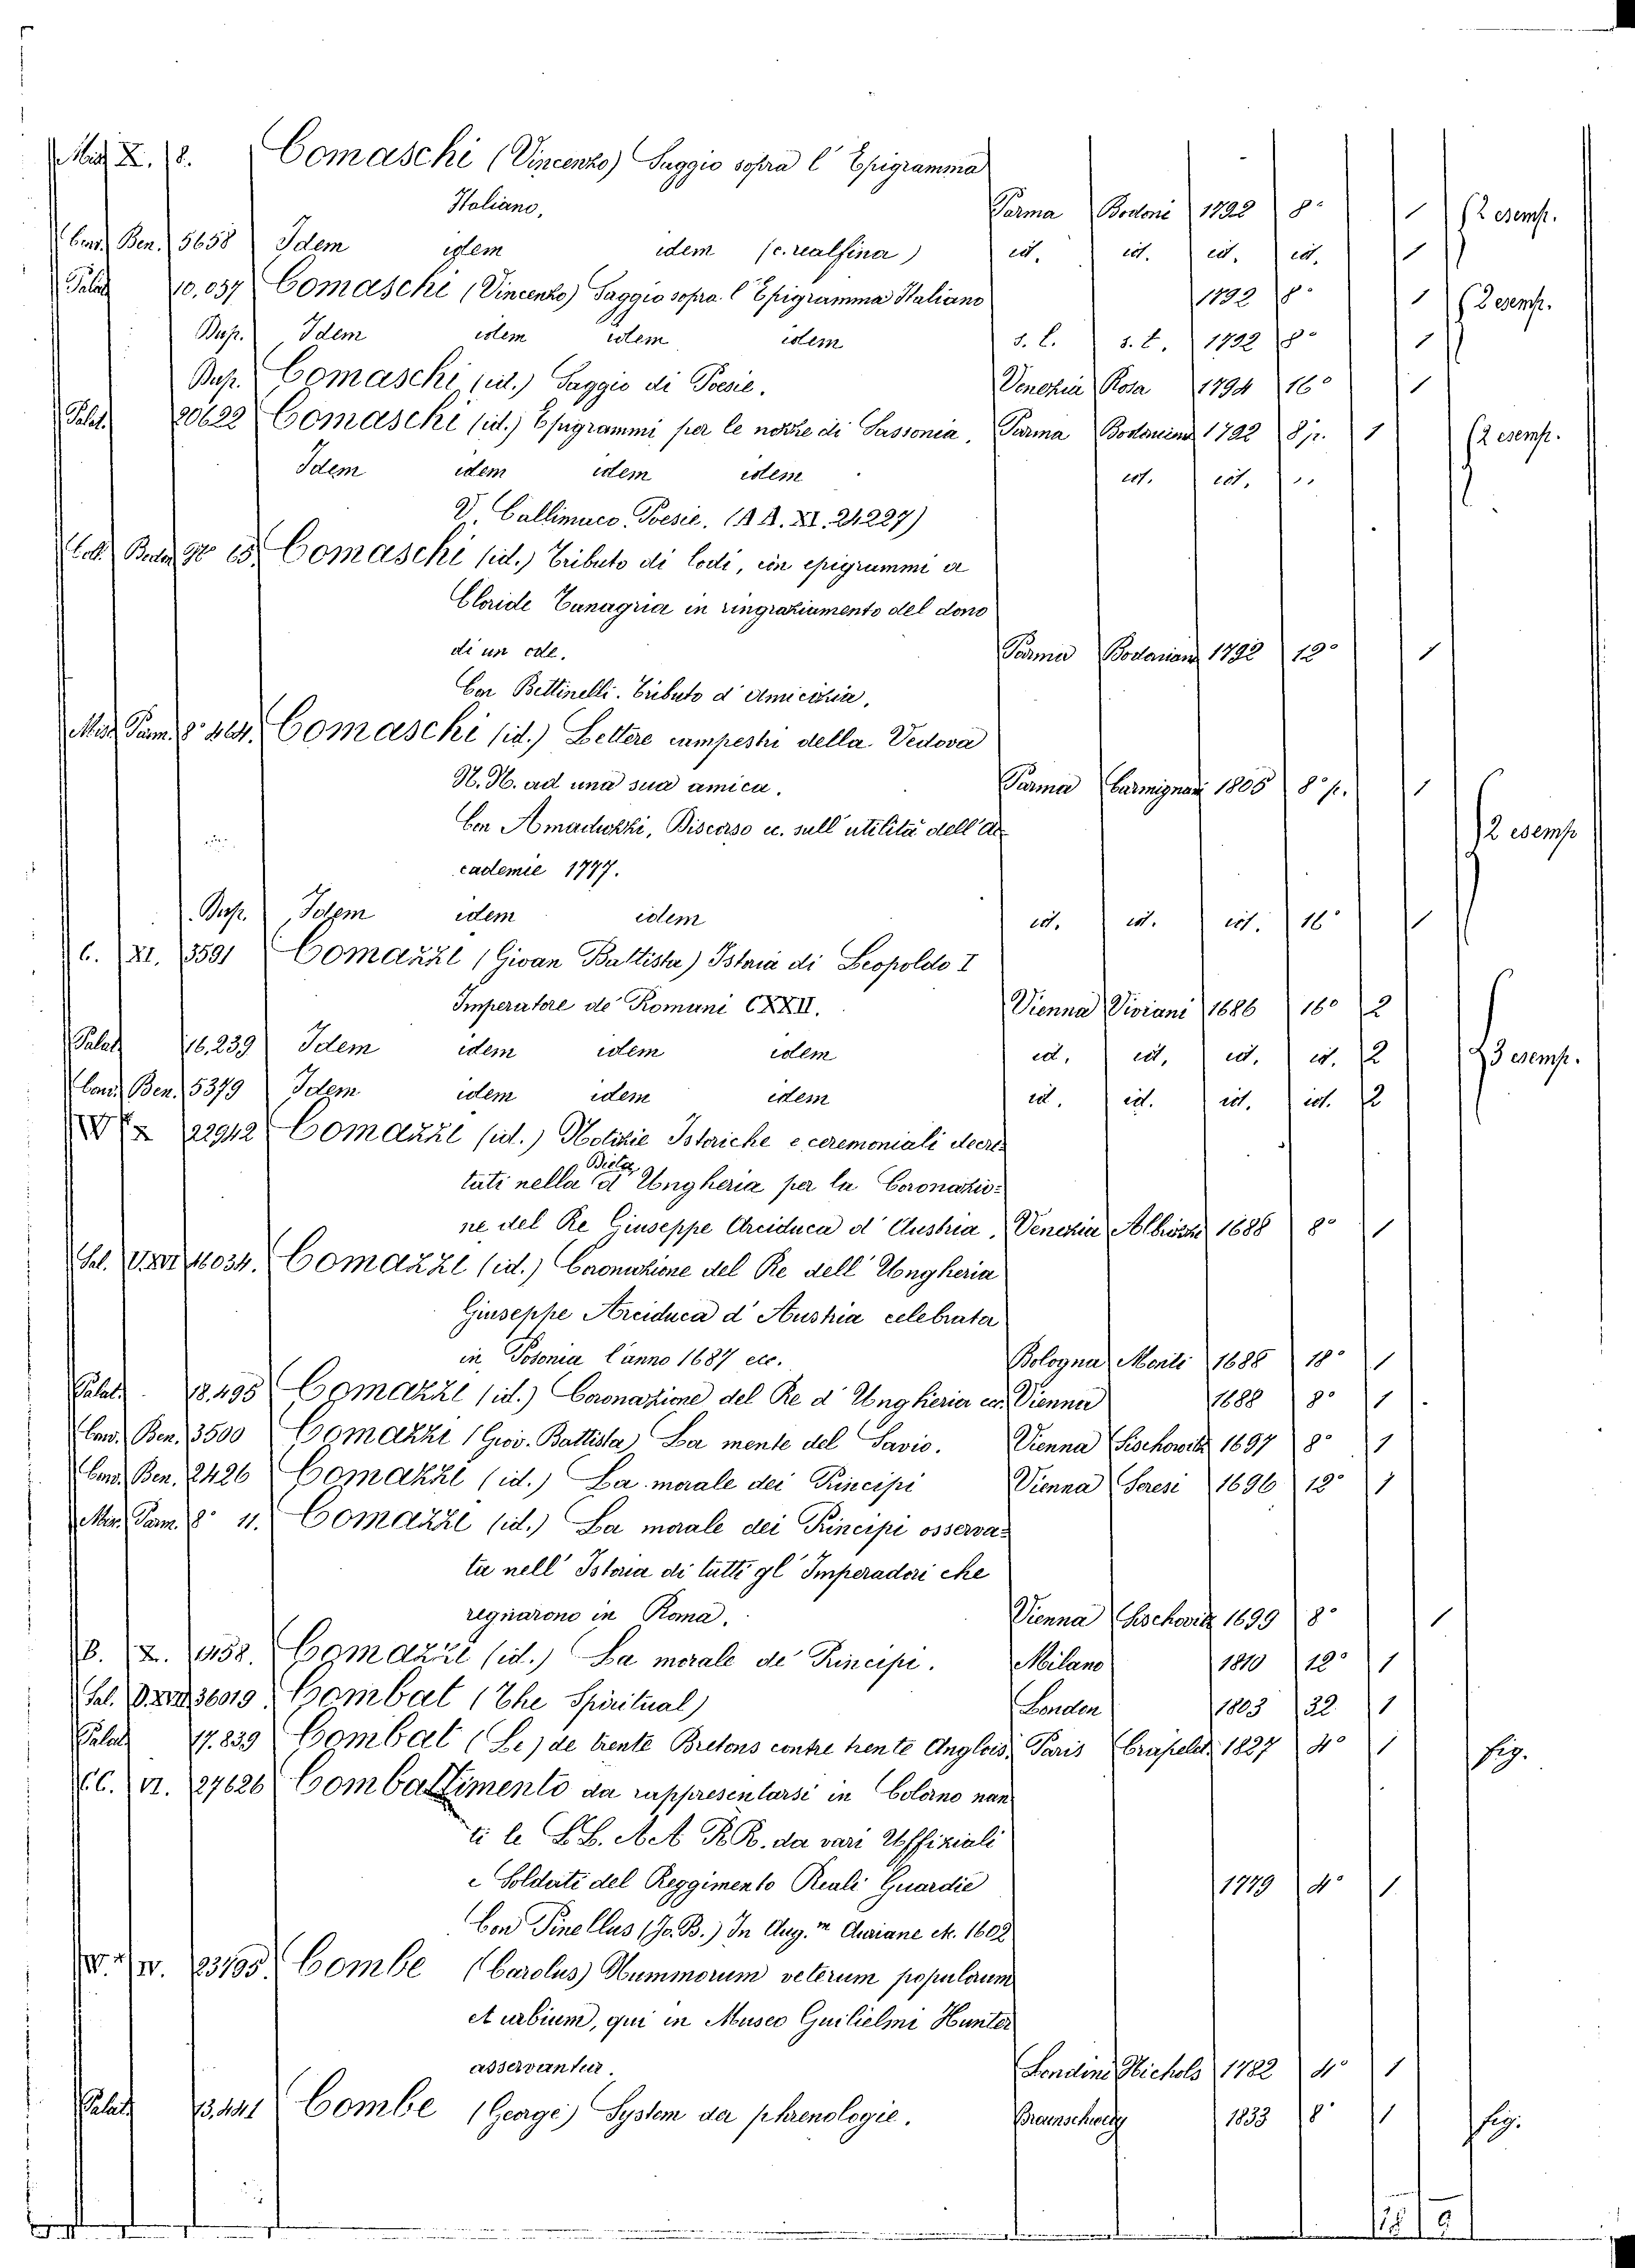 Mis. X. 8. Comaschi (Vincenzo) Saggio sopra l' Epigramma
Italiano, Parma Bodoni 1792 8° 1 2 esemp.
Ben. 5658 Idem idem idem (c. realfina) id. id. id. id. 1
Palat. 10.037 Comaschi (Vincenzo) Saggio sopra l' Epigramma Italiano 1792 8° 1 2 esemp.
Dup. Idem idem idem idem s. l. s. t. 1792 8° 1
Dup. Comaschi (id.) Saggio di Poesie. Venezia Rosa 1794 16° 1
Palat. 20622 Comaschi (id.) Epigrammi per le nozze di Sassonia, Parma 1792 8 p. 1 2 esemp.
Idem idem idem idem id. id. "
V. Callimaco. Poesie. (A A. XI. 24227)
Comaschi (id.) Tributo di lodi, in epigrammi a
Cloride Tanagria in ringraziamento del dono
di un ode. Parma 1792 12° 1
Con Bettinelli. Tributo d' Amicizia.
Mis. Parm. 8° Comaschi (id.) Lettere campestri della Vedova
N. N. ad una sua amica. Parma Carmignani 1805 8° p. 1
Con Amaduzzi, Discorso ec. sull' utilità dell' Ac 2 esemp
cademie 1777.
Dup. Idem idem idem id. id. id. 16° 1
C. XI. 13591 Comazzi (Giovan Battista) Istoria di Leopoldo I
Imperatore de' Romani CXXII. Vienna Viviani 1686 16° 2
Palat. 16.239 Idem idem idem idem id. id. id. id. 2 3 esemp.
Ben. 5379 Idem idem idem idem id. id. id. id. 2
22942 Comazzi (id.) Notizie Istoriche e ceremoniali decre=
tati nella Dieta d' Ungheria per la Coronazio=
ne del Re Giuseppe Arciduca d' Austria. Venezia 1688 8° 1
Sal. Comazzi (id.) Coronazione del Re dell' Ungheria
Giuseppe Arciduca d' Austria celebrata
in Posonia l' anno 1687 etc. Bologna Monti 1688 18° 1
Palat. 18.495 Comazzi (id.) Coronazione del Re d' Ungheria ec. Vienna 1688 8° 1
Ben. 3500 Comazzi (Giov. Battista) La mente del Savio. Vienna Sischowitz 1697 8° 1
Ben. 2426 Comazzi (id.) La morale dei Principi Vienna Seresi 1696 12° 1
Mis. Parm. 8° 11. Comazzi (id.) La morale dei Principi osserva=
ta nell' Istoria di tutti gl' Imperadori che
regnarono in Roma. Vienna 1699 8° 1
B. X. Comazzi (id.) La morale de' Principi. Milano 1810 12° 1
Sal. 36019 Combat (The Spiritual) London 1803 32. 1
Palat. 17.839 Combat (Le) de trente Bretons contre trente Anglois, Paris Crapelet 1827 4° 1 fig.
C.C. VI. 27626 Combattimento da rappresentarsi in Colorno nan
ti le L.L. A.A. R.R. da vari Uffiziali
e Soldati del Reggimento Reali Guardie 1779 4° 1
Con Pinellus (Jo. B.) In Aug.m 1602
Combe (Carolus) Nummorum veterum populorum
et urbium, qui in Museo Guilielmi Hunter
asservantur. Londini Nichols 1782 4° 1
Palat. 13.441 Combe (George) System der phrenologie. Braunschweig 1833 8° 1 fig.